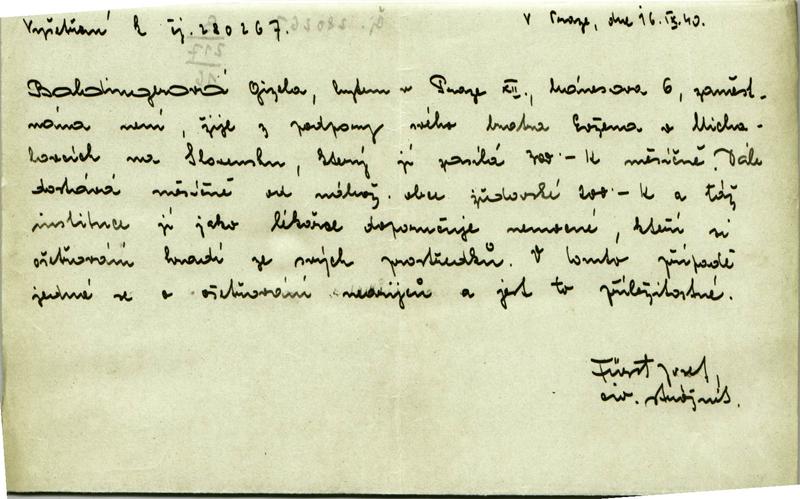 Vyšetřování k čj. 280267. V Praze, dne 16.IX.40.
Baldingerová Gizela, bytem v Praze XII., Mánesova 6, zaměst-
nána není, žije z podpory svého bratra Evžena v Micha-
lovcích na Slovensku, který jí zasílá 300·- K měsíčně. Dále
dostává měsíčně od nábož. obce židovské 200·- K a táž
instituce jí jako lékařce doporučuje nemocné, kteří si
ošetřování hradí ze svých prostředků. V tomto případě
jedná se o ošetřování nearijců a jest to příležitostné.
Fürst Josef,